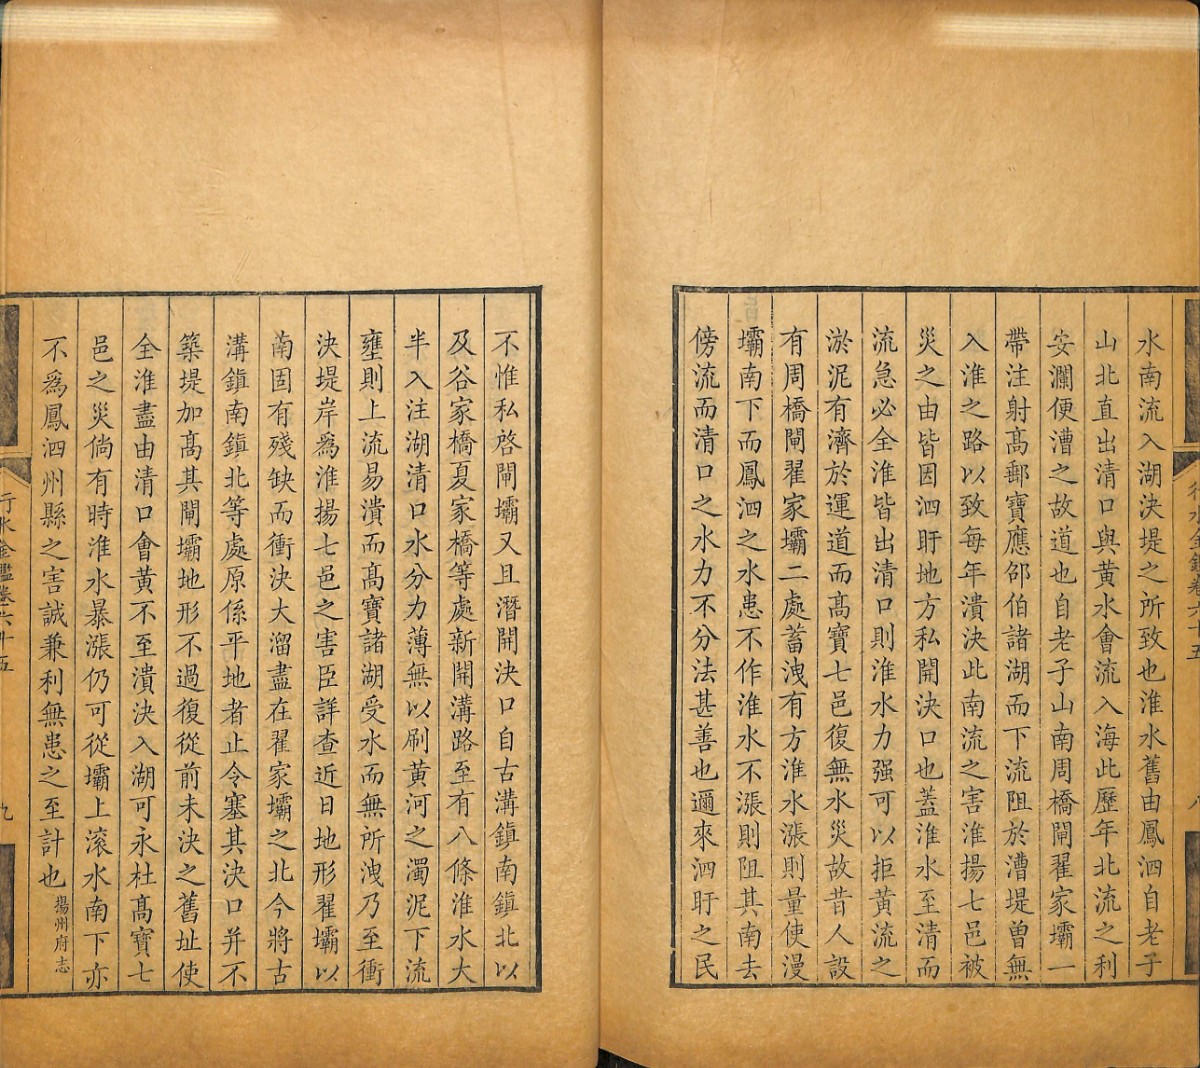 水南流入湖決堤之所致也淮水舊由鳳泗自老子
山北直出清口與黄水會流入海此歷年北流之利
安瀾便漕之故道也自老子山南周橋閘翟家壩一
帶注射髙郵寳應邵伯諸湖而下流阻於漕堤曽無
入淮之路以致每年潰決此南流之害淮揚七邑被
災之由皆因泗盱地方私開決口也蓋淮水至清而
流急必全淮皆出清口則淮水力强可以拒黄流之
淤泥有濟於運道而髙寳七邑復無水災故昔人設
有周橋閘翟家壩二處蓄洩有方淮水漲則量使漫
壩南下而鳳泗之水患不作淮水不漲則阻其南去
傍流而清口之水力不分法甚善也邇來泗盱之民
不惟私啓閘壩又且潛開決口自古溝鎮南鎮北以
及谷家橋夏家橋等處新開溝路至有八條淮水大
半入注湖清口水分力薄無以刷黄河之濁泥下流
壅則上流易潰而髙寳諸湖受水而無所洩乃至衝
決堤岸為淮揚七邑之害臣詳查近日地形翟壩以
南固有殘缺而衝決大溜盡在翟家壩之北今將古
溝鎮南鎮北等處原係平地者止令塞其決口并不
築堤加髙其閘壩地形不過復從前未決之舊址使
全淮盡由清口會黄不至潰決入湖可永杜髙寳七
邑之災倘有時淮水暴漲仍可從壩上滚水南下亦
不爲鳳泗州縣之害誠兼利無患之至計也揚州府志
行水金鑑卷六十五
九